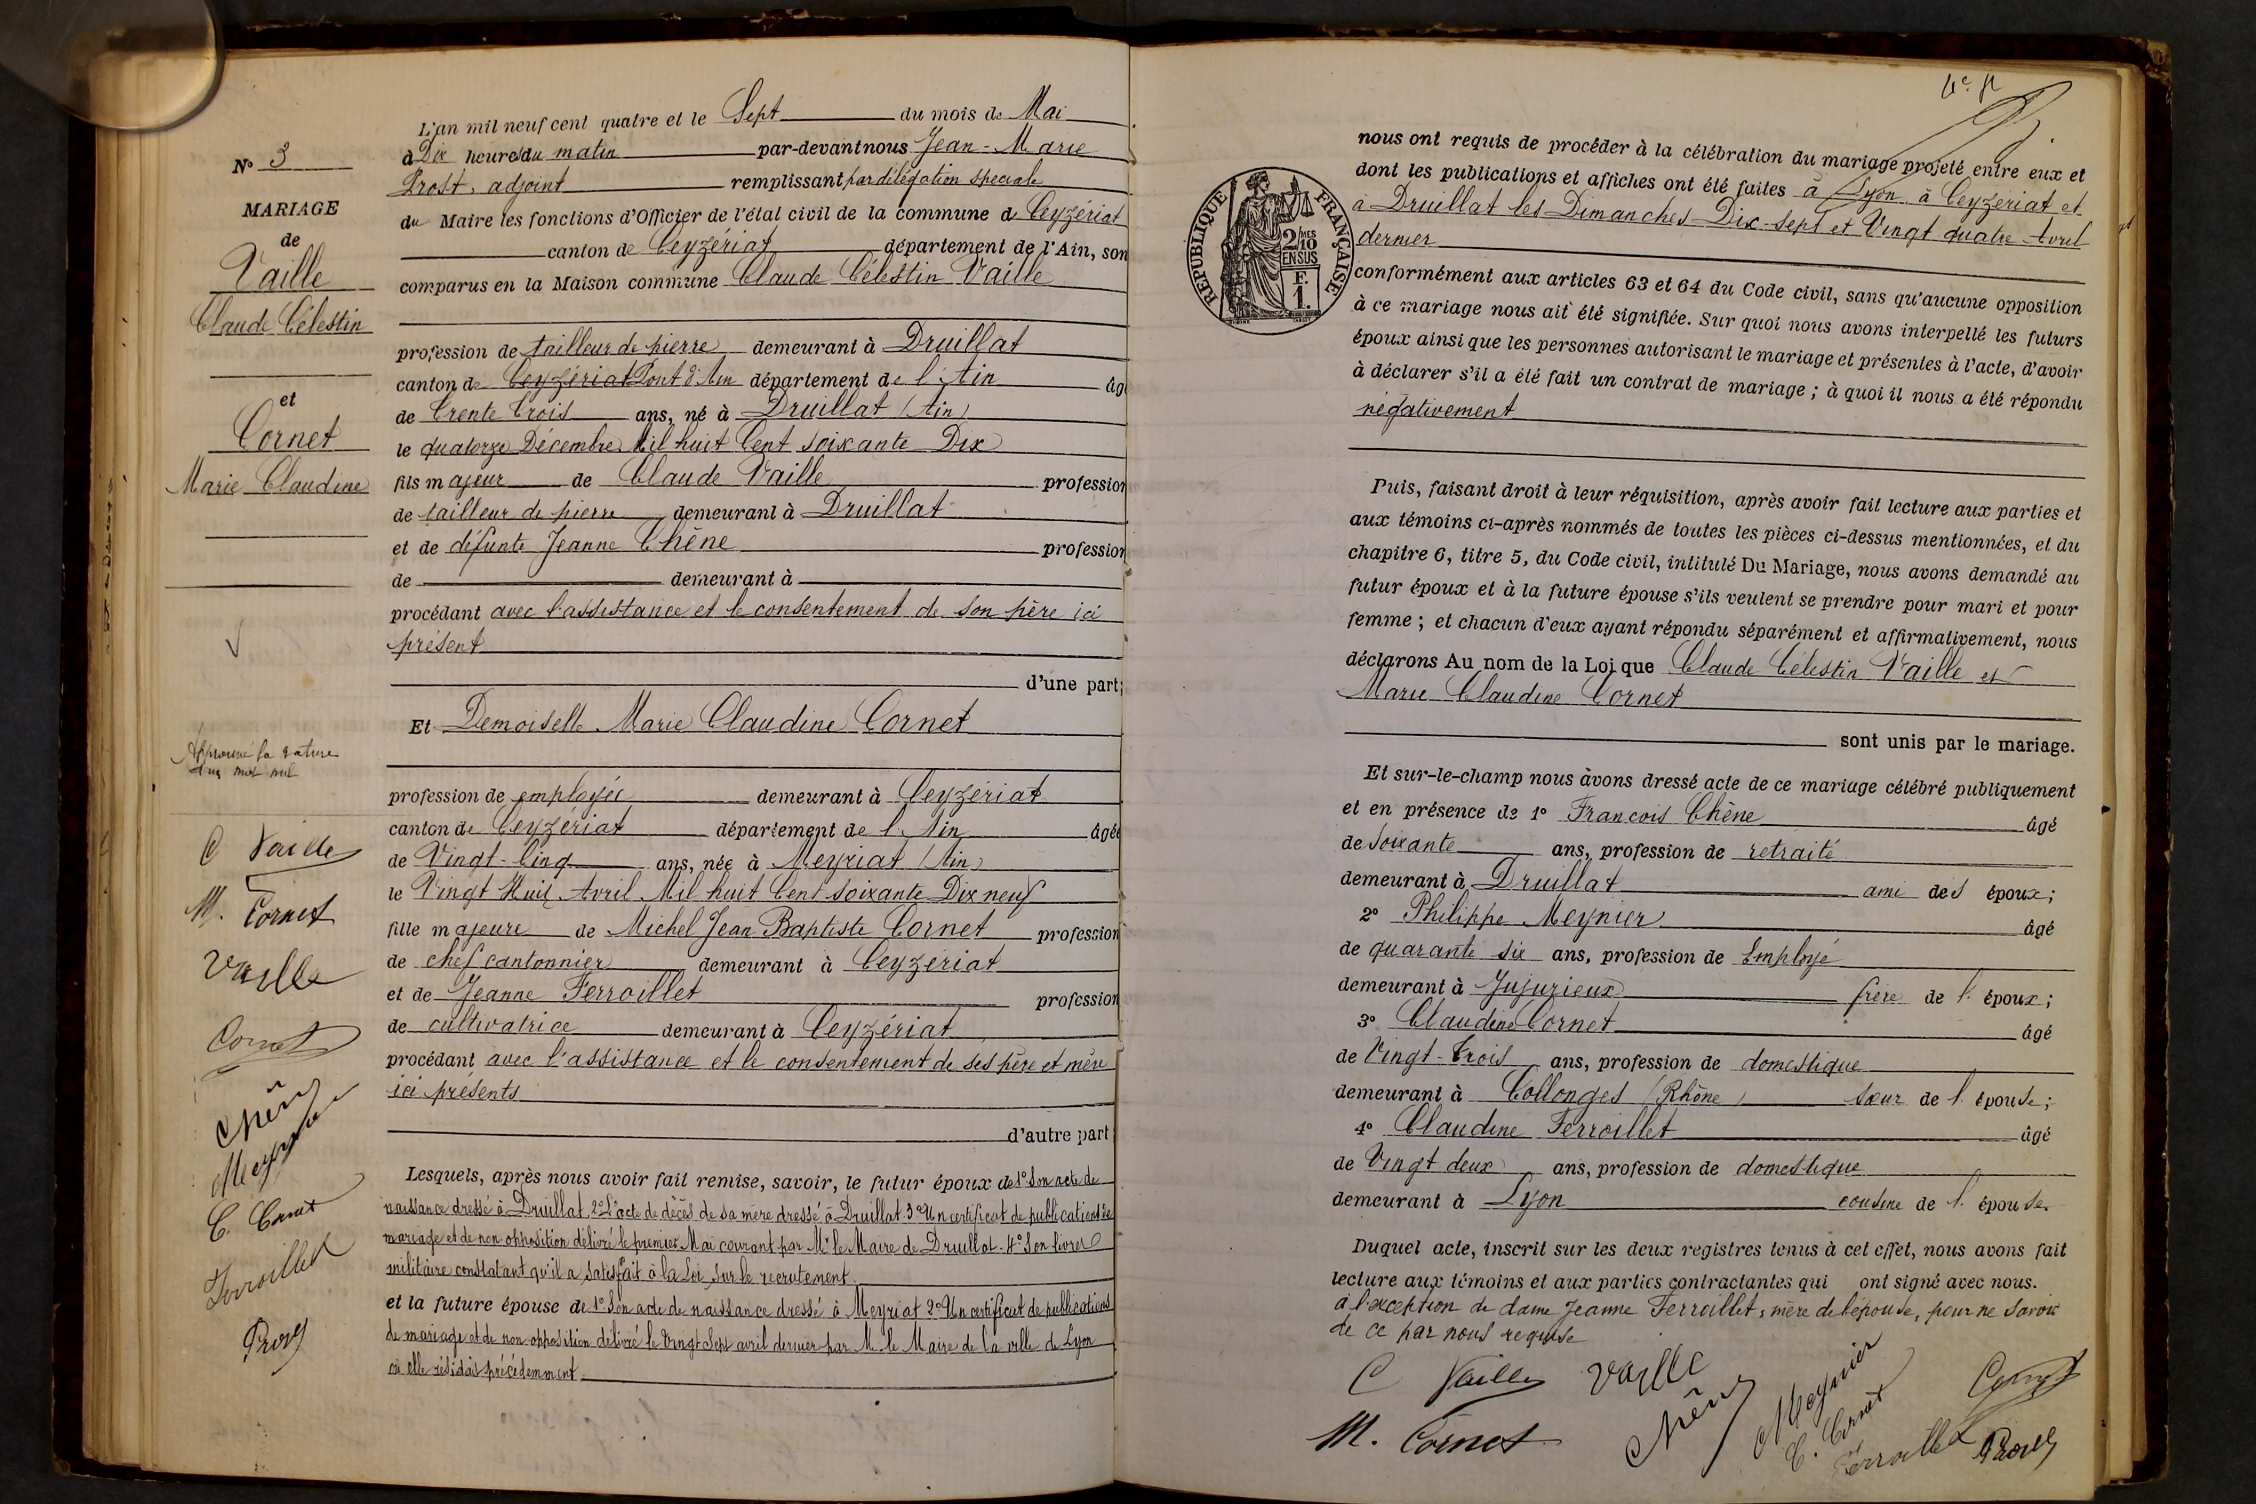 N° 3
MARIAGE
de
Vaille
Claude Célestin
et
Cornet
Marie Claudine
Approuvé la rature
d'un mot nul
C Vaille
M. Cornet
Vaille
Cornet
Chêne
Meynier
C. Cornet
Ferroillet
Prost
L'an mil neuf cent quatre et le Sept du mois de Mai
à Dix heures du matin par-devant nous Jean-Marie
Prost, adjoint remplissant par délégation spéciale
du Maire les fonctions d'Officier de l'état civil de la commune de Ceyzériat
canton de Ceyzériat département de l'Ain, son
comparus en la Maison commune Claude Célestin Vaille
profession de tailleur de pierre demeurant à Druillat
canton de Ceyzériat Pont d'Ain département de l'Ain âgé
de trente trois ans, né à Druillat (Ain)
le quatorze Décembre Mil huit Cent soixante Dix
fils majeur de Claude Vaille profession
de tailleur de pierre demeurant à Druillat
et de défunte Jeanne Chêne profession
de demeurant à
procédant avec l'assistance et le consentement de son père ici
présent
d'une part;
Et Demoiselle Marie Claudine Cornet
profession de employée demeurant à Ceyzériat
canton de Ceyzériat département de l'Ain âgée
de Vingt-Cinq ans, née à Meyriat (Ain)
le Vingt Huit Avril Mil huit Cent soixante Dix neuf
fille majeure de Michel Jean Baptiste Cornet profession
de chef cantonnier demeurant à Ceyzériat
et de Jeanne Ferroillet profession
de cultivatrice demeurant à Ceyzériat
procédant avec l'assistance et le consentement de ses père et mère
ici présents
d'autre part
Lesquels, après nous avoir fait remise, savoir, le futur époux de 1° Son acte de
naissance dressé à Druillat 2° L'acte de décès de sa mère dressé à Druillat. 3° Un certificat de publications de
mariage et de non opposition délivré le premier Mai courant par Mr le Maire de Druillat. 4° Son livret
militaire constatant qu'il a satisfait à la Loi sur le recrutement.
et la future épouse de 1° Son acte de naissance dressé à Meyriat 2° Un certificat de publications
de mariage et de non opposition délivré le Vingt Sept avril dernier par Mr le Maire de la ville de Lyon
où elle résidait précédemment
4e f
nous ont requis de procéder à la célébration du mariage projeté entre eux et
dont les publications et affiches ont été faites à Lyon à Ceyzériat et
à Druillat les Dimanches Dix-sept et Vingt quatre Avril
dernier
conformément aux articles 63 et 64 du Code civil, sans qu'aucune opposition
à ce mariage nous ait été signifiée. Sur quoi nous avons interpellé les futurs
époux ainsi que les personnes autorisant le mariage et présentes à l'acte, d'avoir
à déclarer s'il a été fait un contrat de mariage; à quoi il nous a été répondu
négativement
RÉPUBLIQUE FRANÇAISE
2/10 MES
EN SUS
F.
1.
Puis, faisant droit à leur réquisition, après avoir fait lecture aux parties et
aux témoins ci-après nommés de toutes les pièces ci-dessus mentionnées, et du
chapitre 6, titre 5, du Code civil, intitulé Du Mariage, nous avons demandé au
futur époux et à la future épouse s'ils veulent se prendre pour mari et pour
femme; et chacun d'eux ayant répondu séparément et affirmativement, nous
déclarons Au nom de la Loi que Claude Célestin Vaille et
Marie Claudine Cornet
sont unis par le mariage.
Et sur-le-champ nous avons dressé acte de ce mariage célébré publiquement
et en présence de 1° François Chêne âgé
de Soixante ans, profession de retraité
demeurant à Druillat ami des époux;
2° Philippe Meynier âgé
de quarante six ans, profession de Employé
demeurant à Jujurieux frère de l'époux;
3° Claudine Cornet âgé
de Vingt-trois ans, profession de domestique
demeurant à Collonges (Rhône) sœur de l'épouse;
4° Claudine Ferroillet âgé
de Vingt deux ans, profession de domestique
demeurant à Lyon cousine de l'épouse.
Duquel acte, inscrit sur les deux registres tenus à cet effet, nous avons fait
lecture aux témoins et aux parties contractantes qui ont signé avec nous.
à l'exception de dame Jeanne Ferroillet, mère de l'épouse, pour ne savoir
de ce par nous requise
C Vaille Vaille Chêne Meynier Cornet
M. Cornet C. Cornet Ferroillet Prost